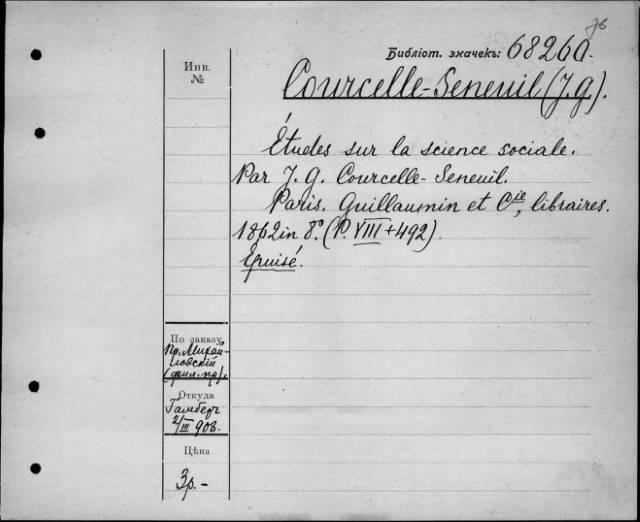 76
Библіот. значекъ: 68260.
Инв.
№
Courcelle-Seneuil (J.G.).
Études sur la science sociale.
Par J. G. Courcelle-Seneuil.
Paris. Guillaumin et Cie, libraires.
1862 in 8°. (P. VIII+492).
Epuisé.
По заказу
Пр. Михай-
ловскій
Откуда
Гамберъ
2/III 908.
Цѣна
3р.-